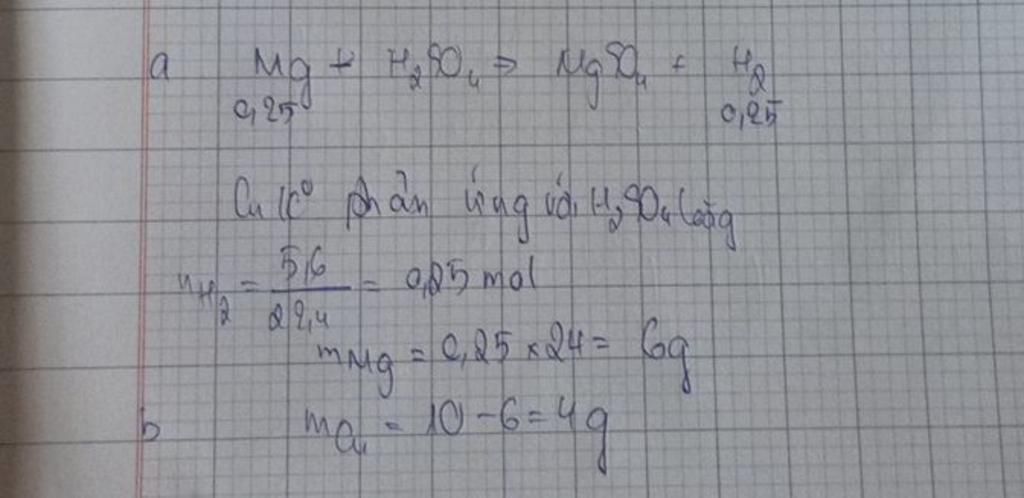 a Mg + H₂SO₄ => MgSO₄ + H₂
0,25 0,25
Cu k⁰ phản ứng với H₂SO₄ loãng
nH₂ = 5,6 / 22,4 = 0,25 mol
mMg = 0,25 × 24 = 6g
b mCu = 10 - 6 = 4g